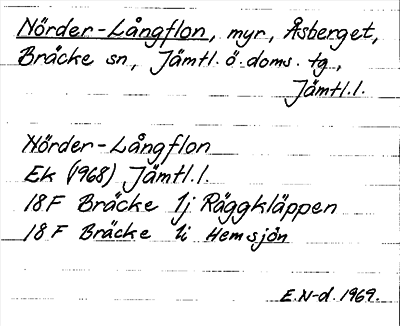 Nörder-Långflon, myr, Åsberget,
Bräcke sn, Jämtl. ö. doms. tg.,
Jämtl.l.
Nörder-Långflon
Ek (1968) Jämtl.l.
18F Bräcke 1j Räggkläppen
18F Bräcke 1i Hemsjön
E.N-d. 1969.